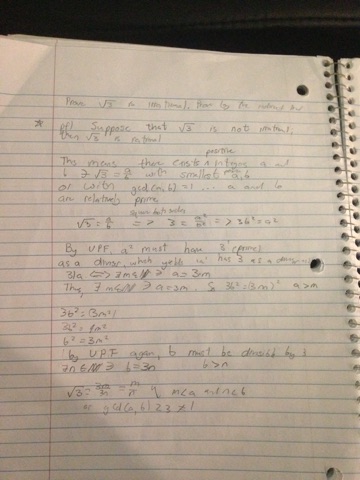 Prove √3 is irrational,
* pf) Suppose that √3 is not irrational,
then √3 is rational
positive
This means there exists integers a and
b ∋ √3 = a/b with smallest a, b
or with gcd(a, b) = 1 ... a and b
are relatively prime
square both sides
√3 = a/b => 3 = a²/b² => 3b² = a²
By UPF, a² must have 3 (prime)
as a divisor, which yields "a" has 3 as a
3|a <=> ∃ m∈N ∋ a = 3m
Thus, ∃ m∈N ∋ a = 3m. So 3b² = (3m)² a > m
3b² = (3m²)
b² = 3m²
by UPF again, b must be divided by 3
∃n∈N ∋ b = 3n b > n
√3 = 3m/3n = m/n m < a and n < b
or gcd(a, b) ≥ 3 ≠ 1